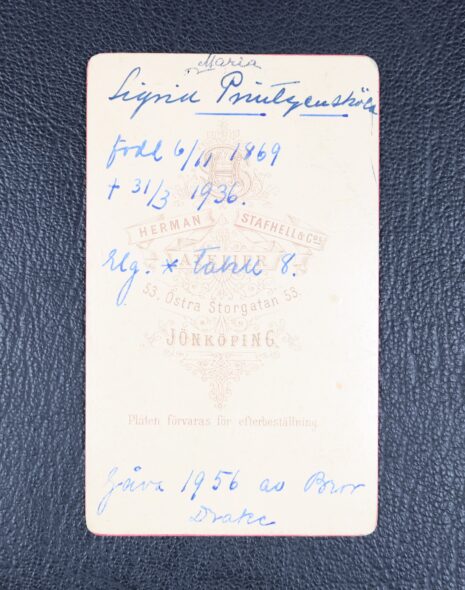 Maria
Sigrid Printzensköld
född 6/11 1869
+ 31/3 1936.
HERMAN STAFHELL & Co's
ATELIER
Elg. * Tabell 8.
53. Östra Storgatan 53.
JÖNKÖPING.
Plåten förvaras för efterbeställning.
Gåva 1956 av Bror
Drake